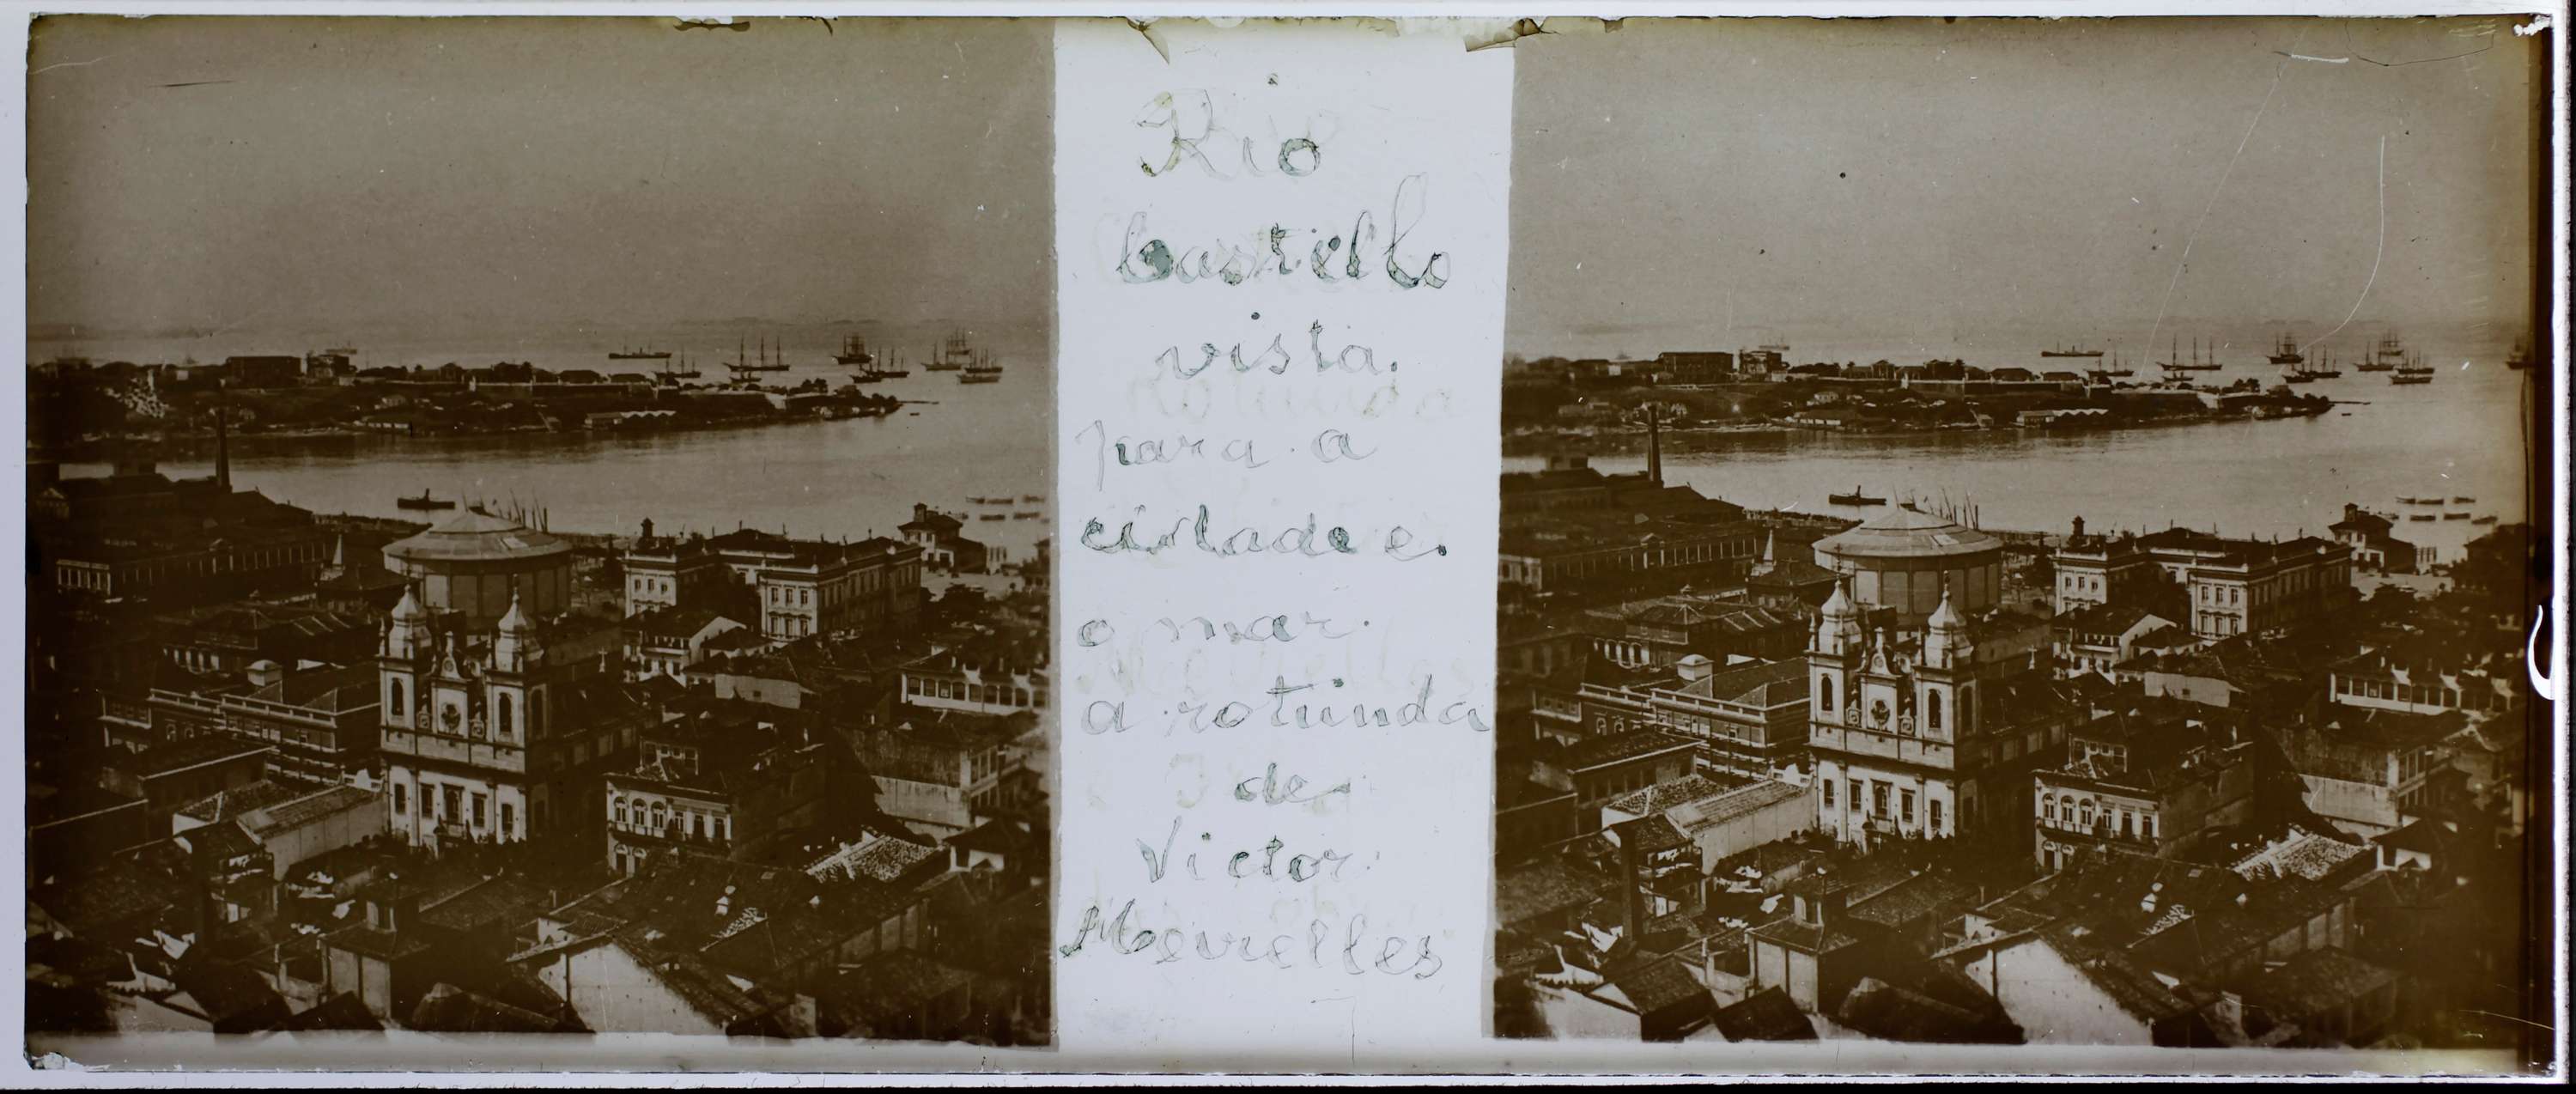 Rio
Castello
vista
para a
cidade e
o mar.
a rotunda
de
Victor
Meirelles